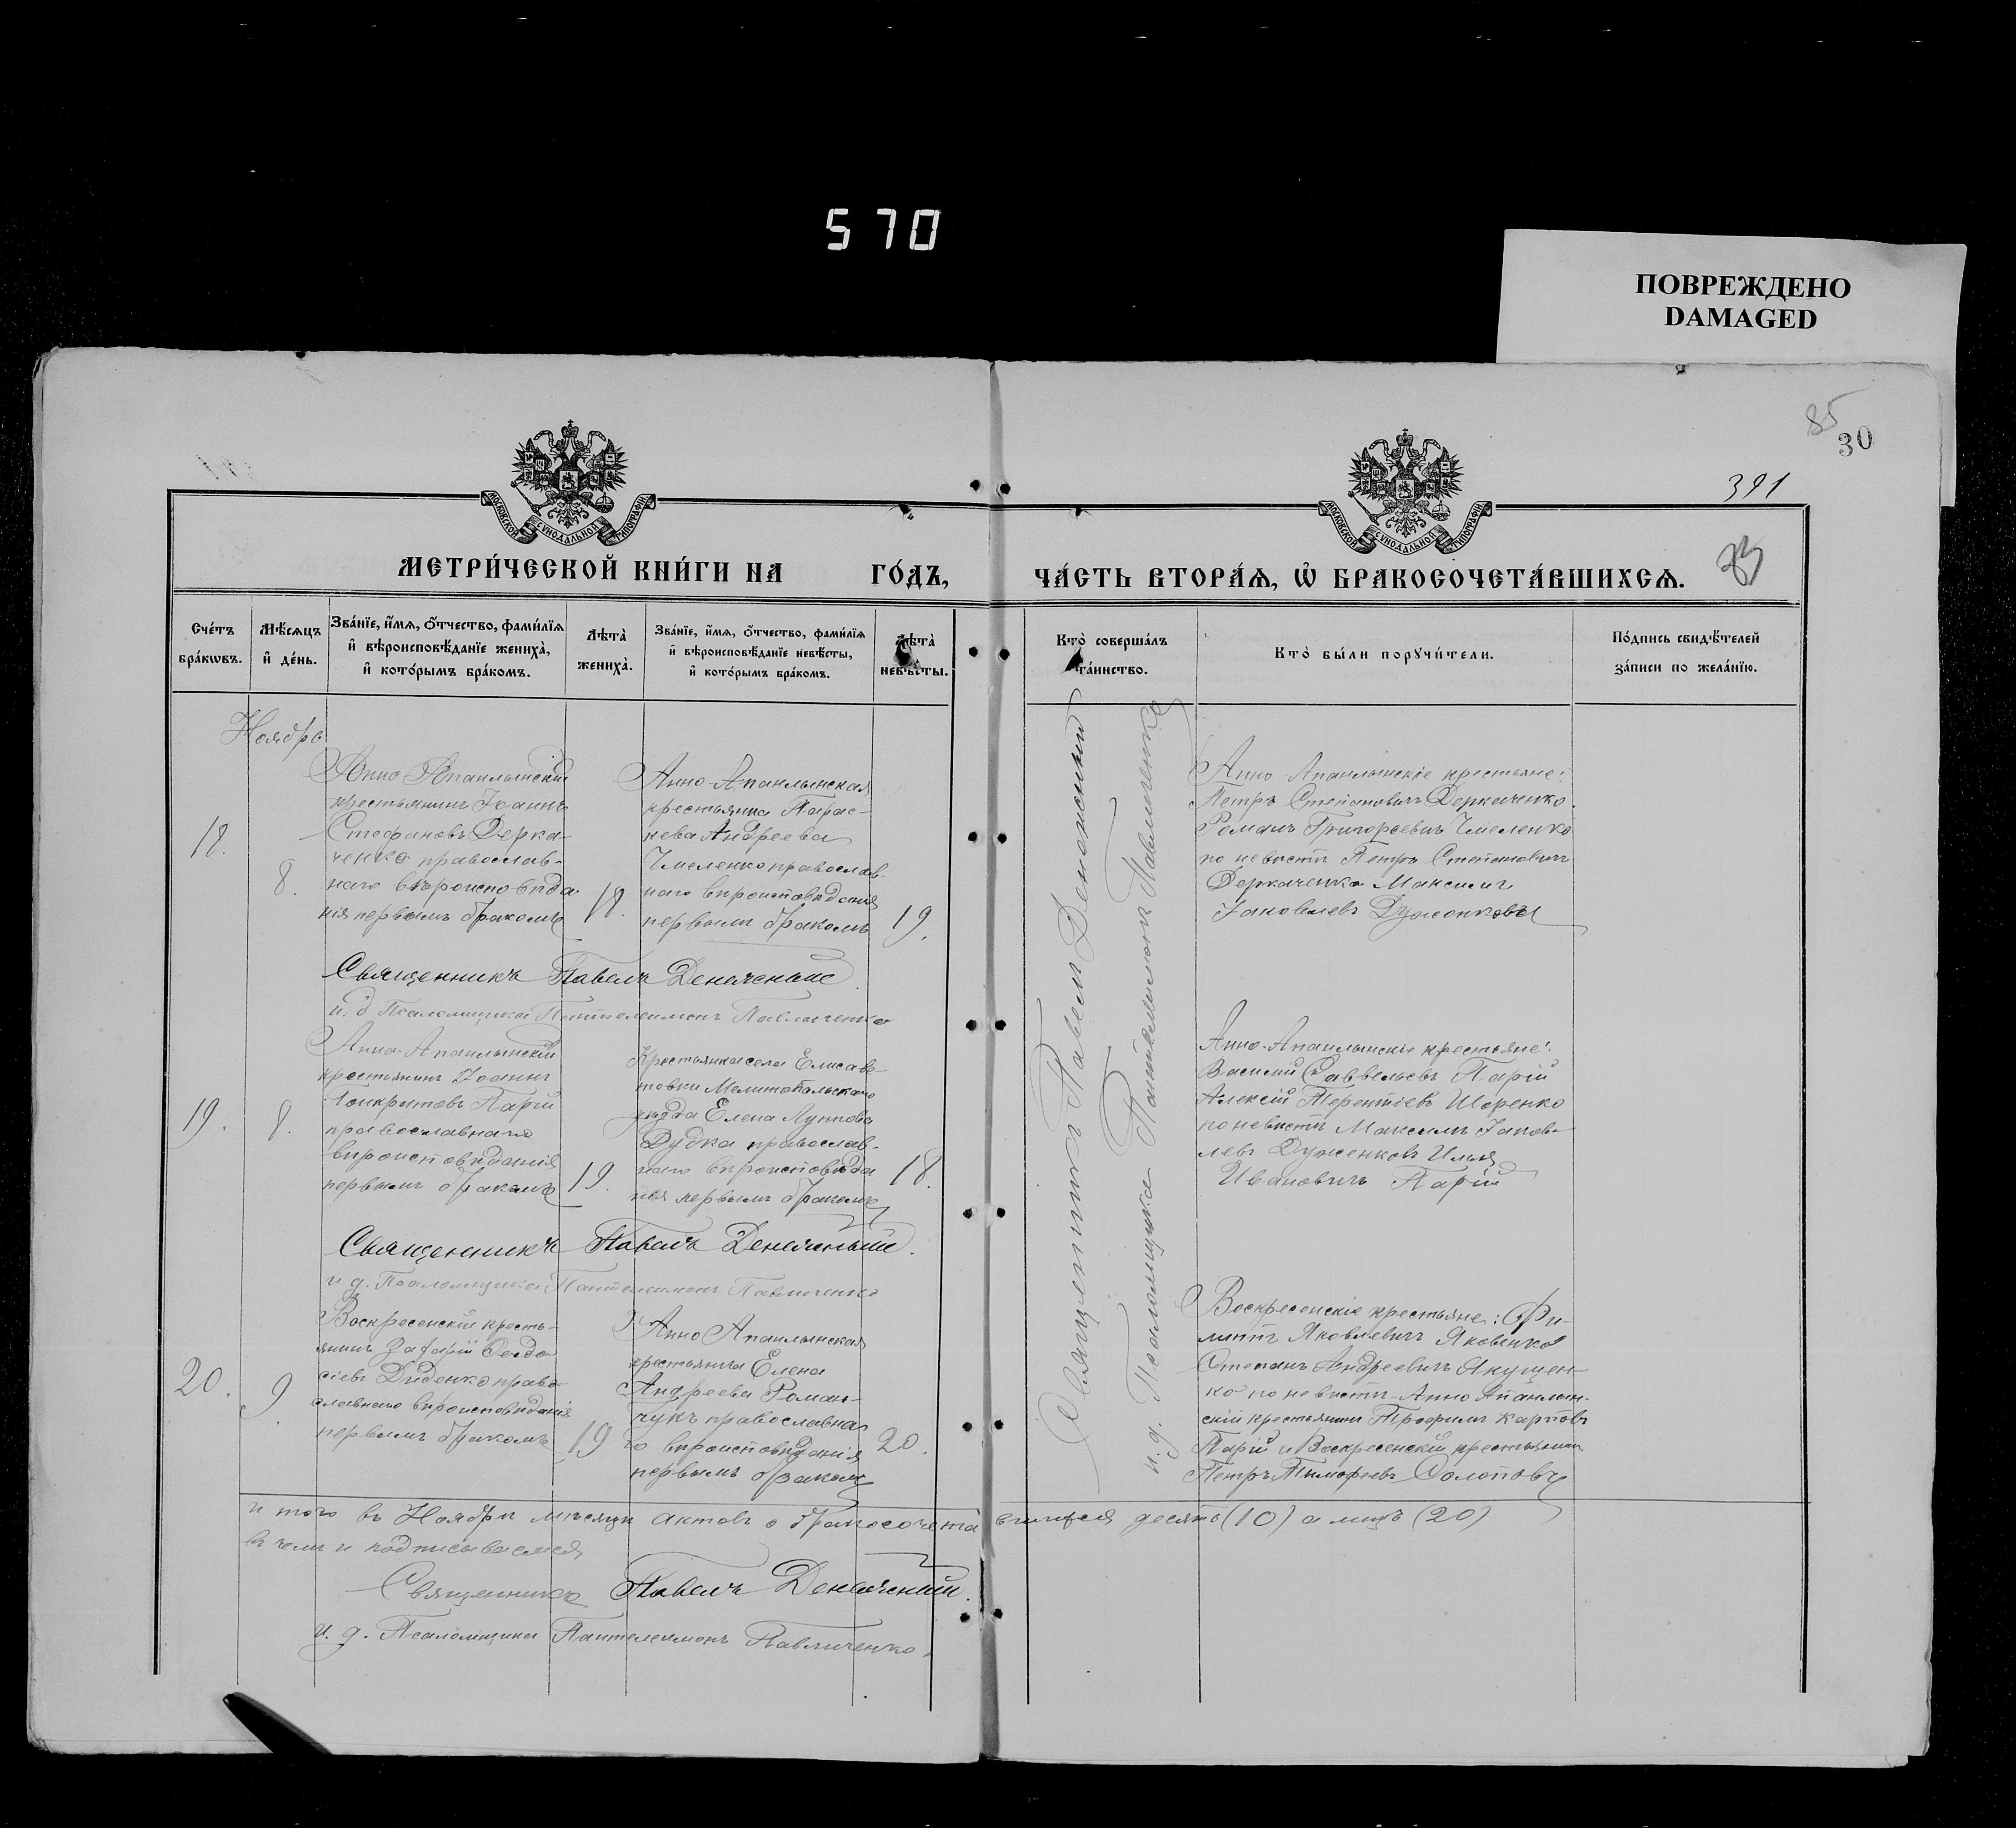 570
ПОВРЕЖДЕНО
DAMAGED
85
30
391
МОСКОВСКОЙ СУНОДАЛЬНОЙ ТИПОГРАФІИ
МОСКОВСКОЙ СУНОДАЛЬНОЙ ТИПОГРАФІИ
МЕТРИ́ЧЕСКОЙ КНИ́ГИ НА ГО́ДЪ,
ЧА́СТЬ ВТОРА́Ѧ, Ѡ҆ БРАКОСОЧЕТА́ВШИХСѦ.
Сче́тъ
бра́кѡвъ.
Мѣ́сѧцъ
и҆ де́нь.
Зва́нїе, и҆́мѧ, ѻ҆́тчество, фами́лїѧ
и҆ вѣроисповѣ́данїе жениха̀,
и҆ кото́рымъ бра́комъ.
Лѣта̀
жениха̀.
Зва́нїе, и҆́мѧ, ѻ҆́тчество, фами́лїѧ
и҆ вѣроисповѣ́данїе невѣ́сты,
и҆ кото́рымъ бра́комъ.
Лѣта̀
невѣ́сты.
Кто̀ соверша́лъ
та́инство.
Кто̀ бы́ли порꙋчи́тели.
По́дпись свидѣ́телей
за́писи по жела́нїю.
Ноябрь
18.
8.
Анно Апанлынскій
крестьянинъ Іоаннъ
Стефановъ Дерка-
ченко православ-
наго вѣроисповѣда-
нія первымъ бракомъ
18.
Анно-Апанлынская
крестьянка Парас-
кева Андреева
Чмеленко православ-
наго вѣроисповѣданія
первымъ бракомъ
19.
Анно Апанлынскіе крестьяне:
Петръ Степановичъ Деркаченко
Романъ Григорьевичъ Чмеленко
по невѣстѣ Петръ Степановичъ
Деркаченко Максимъ
Іаковлевъ Дуженковъ
Священникъ Павелъ
и. д. Псаломщика Пантелеимонъ Павличенко
19.
8.
Анно-Апанлынскій
крестьянинъ Іоаннъ
Парій
православнаго
вѣроисповѣданія
первымъ бракомъ
19.
Крестьянка села Елисаве-
товки Мелитопольскаго
уѣзда Елена
Дудка православ-
наго вѣроисповѣда
нія первымъ бракомъ
18.
Анно-Апанлынскіе крестьяне:
Василій Саввельевъ Парій
Алексій Терентіевъ Шоренко
по невѣстѣ Максимъ Іаков-
левъ Дуженковъ Илья
Ивановичъ Парій
Священникъ Павелъ
и. д. Псаломщика Пантелеимонъ Павличенко
20.
9.
Воскресенскій кресть-
янинъ Захарій Феодо
сіевъ Диденко право
славнаго вѣроисповѣданія
первымъ бракомъ
19
Анно Апанлынская
крестьянка Елена
Андреева Роман-
чукъ православна
го вѣроисповѣданія
первымъ бракомъ
20.
Воскресенскіе крестьяне: Фи-
липпъ Яковлевичъ Яковенко
Степанъ Андреевичъ Якущен-
ко по невѣстѣ Анно Апанлын-
скій крестьянинъ Трофимъ Карповъ
Парій и Воскресенскій крестьянинъ
Петръ Тимофеевъ Солоповъ
Священникъ Павелъ
и. д. Псаломщика Пантелеимонъ Павличенко
и того въ Ноябрѣ мѣсяцѣ актовъ о бракосочетавшихся десять (10) а лицъ (20)
въ чемъ и подписываемся
Священникъ Павелъ
и. д. Псаломщика Пантелеимонъ Павличенко.